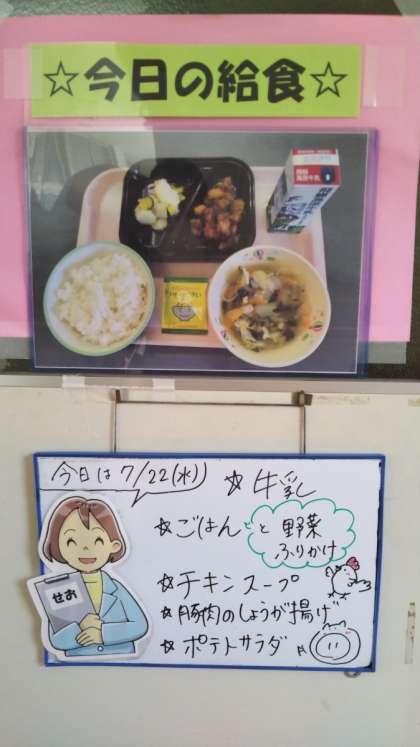 ☆今日の給食☆
今日は 7/22(水)
☆ 牛乳
☆ ごはん と 野菜
ふりかけ
☆ チキンスープ
☆ 豚肉のしょうが揚げ
☆ ポテトサラダ
せお